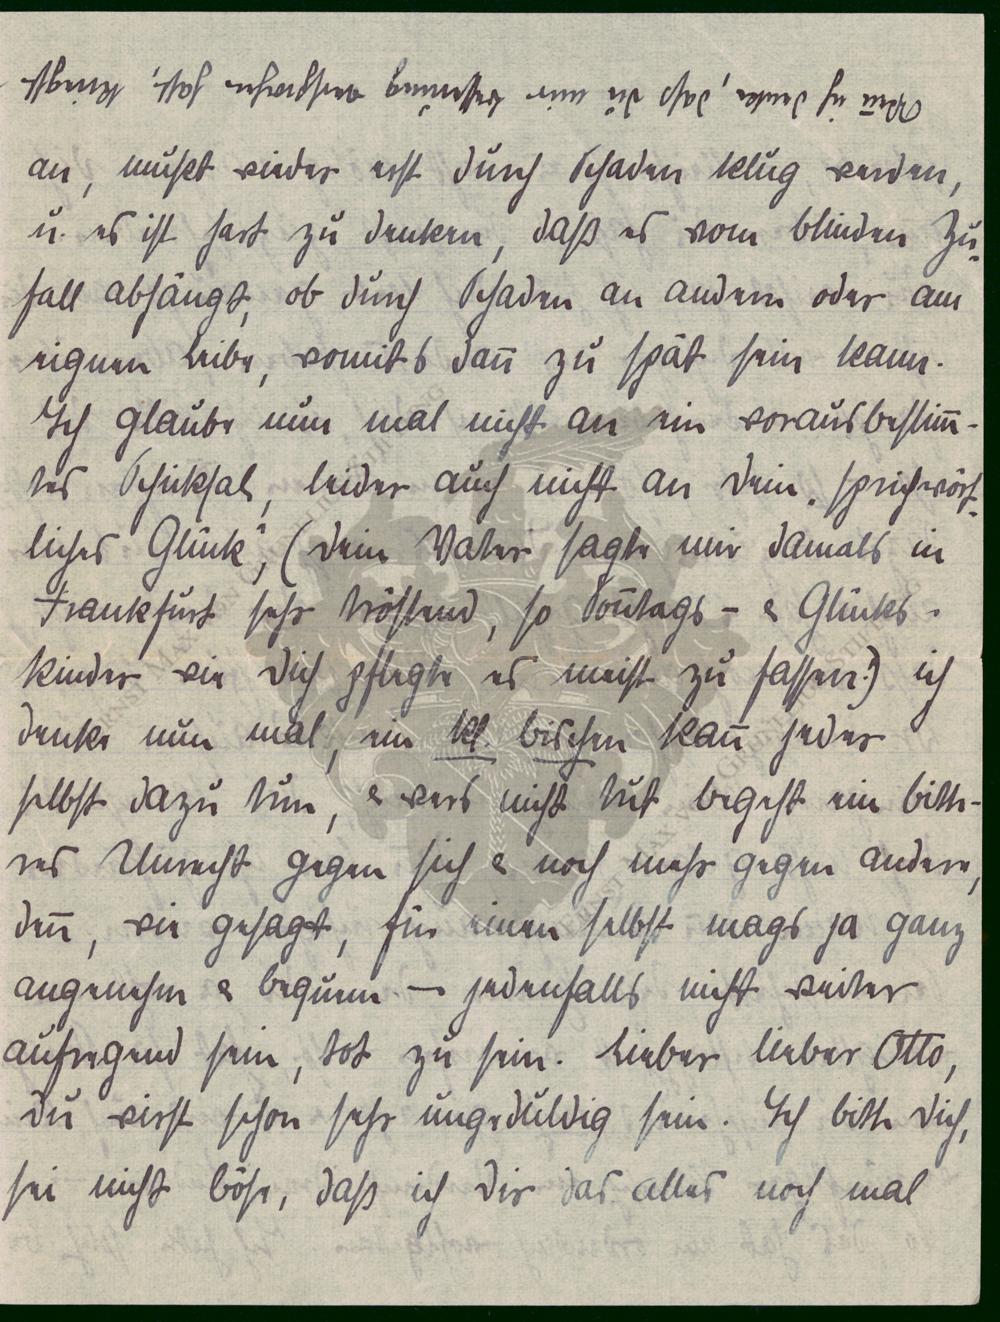 Weñ ich denke, dass du mir Besserung versprochen hast, kriegst
an, mußt wieder erst durch Schaden klug werden,
u. es ist hart zu denken, daß es vom blinden Zu-
fall abhängt, ob durch Schaden an andern oder am
eignen Leibe, womits dañ zu spät sein kann.
Ich glaube nun mal nicht an ein vorausbestim̄-
tes Schicksal, leider auch nicht an dein „sprichwört-
liches Glück", (dein Vater sagte mir damals in
Frankfurt sehr tröstend, so Soñtags- & Glücks-
kinder wie dich pflegte es meist zu fassen!) ich
denke nun mal, ein kl. bischen kañ jeder
selbst dazu tun, & wers nicht tut begeht ein bitte-
res Unrecht gegen sich & noch mehr gegen andere,
deñ, wie gesagt, für einen selbst mags ja ganz
angenehm & bequem — jedenfalls nicht weiter
aufregend sein, tot zu sein. Lieber lieber Otto,
du wirst schon sehr ungeduldig sein. Ich bitte dich,
sei nicht böse, daß ich dir das alles noch mal